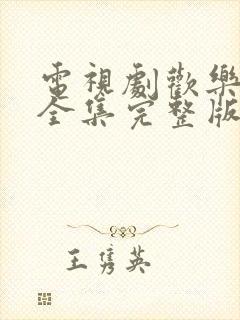 電視劇歡樂
全集完整版
王隽英